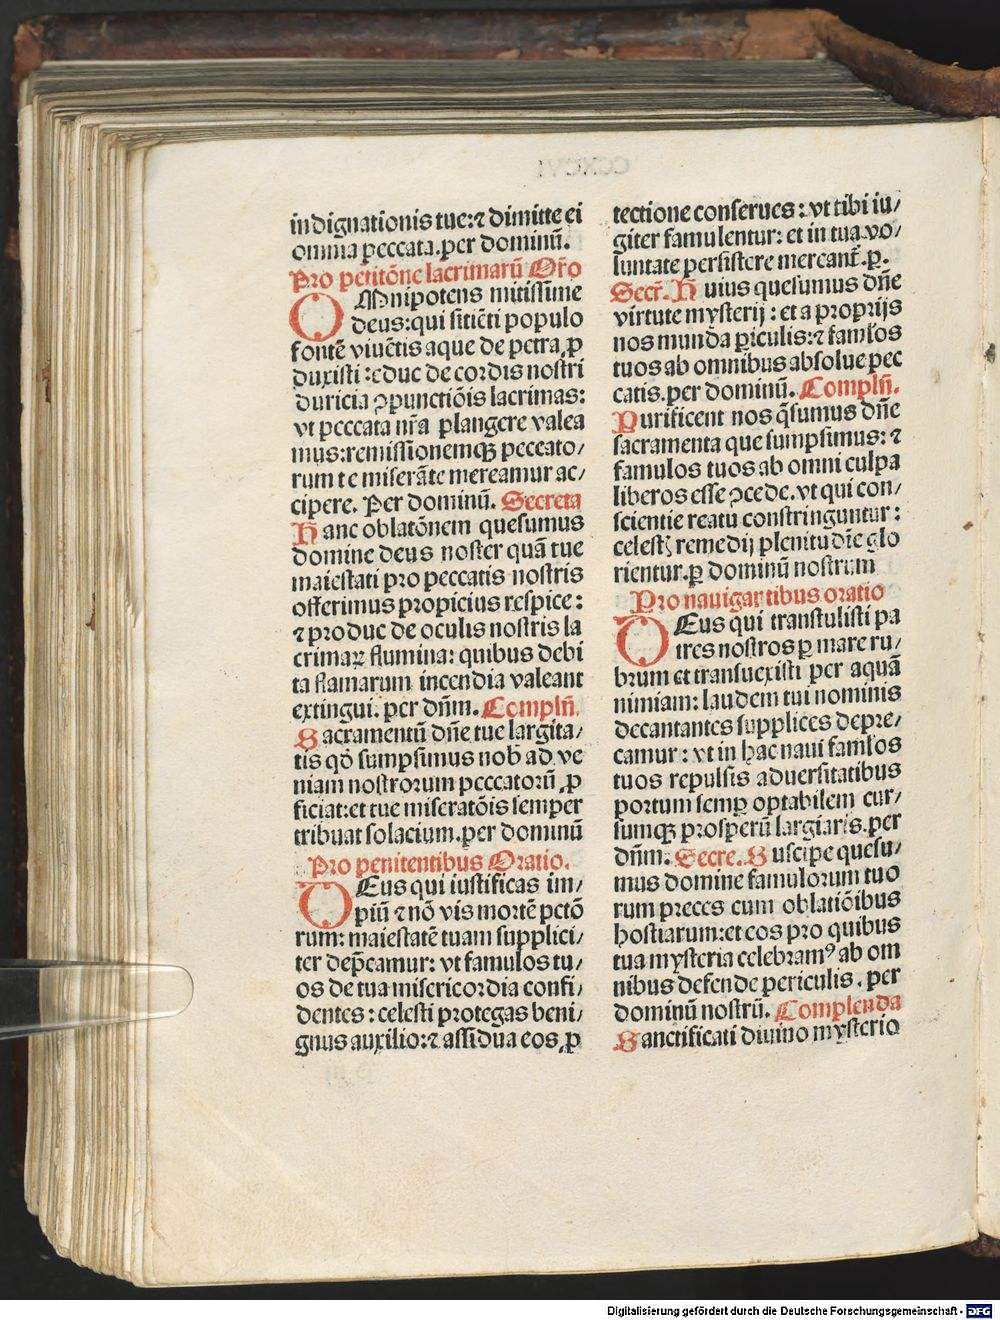 indignationis tue:⁊ dimitte ei
omnia peccata.per dominū.
Pro petitōne lacrimarū Or̄o
OMnipotens mitissime
deus:qui sitiēti populo
fontē viuētis aque de petra ꝓ
duxisti:educ de cordis nostri
duricia ꝯpunctiōis lacrimas:
vt peccata nr̄a plangere valea
mus:remissionemqꝫ peccato/
rum te miserāte mereamur ac/
cipere. Per dominū. Secreta
Hanc oblatōnem quesumus
domine deus noster quā tue
maiestati pro peccatis nostris
offerimus propicius respice:
⁊ produc de oculis nostris la
crimaꝝ flumina: quibus debi
ta flamarum incendia valeant
extingui. per dn̄m. Compln̄.
Sacramentū dn̄e tue largita/
tis qd̄ sumpsimus nob ad ve
niam nostrorum peccatorū ꝓ
ficiat:et tue miseratōis semper
tribuat solacium.per dominū
Pro penitentibus Oratio.
DEus qui iustificas im/
piū ⁊ nō vis mortē pctō
rum: maiestatē tuam supplici/
ter dep̄camur: vt famulos tu/
os de tua misericordia confi/
dentes: celesti protegas beni/
gnus auxilio:⁊ assidua eos ꝓ
tectione conserues: vt tibi iu/
giter famulentur: et in tua vo/
luntate persistere mereant̄.p.
Secr̄. Huius quesumus dn̄e
virtute mysterij: et a proprijs
nos munda ꝑiculis:⁊ famľos
tuos ab omnibus absolue pec
catis.per dominū. Compln̄.
Purificent nos q̄sumus dn̄e
sacramenta que sumpsimus: ⁊
famulos tuos ab omni culpa
liberos esse ꝯcede.vt qui con/
scientie reatu constringuntur:
celestꝭ remedij plenitudīe glo
rientur.ꝑ dominū nostrum
Pro nauigantibus oratio
DEus qui transtulisti pa
tres nostros ꝑ mare ru/
brum et transuexisti per aquā
nimiam: laudem tui nominis
decantantes supplices depre/
camur: vt in hac naui famľos
tuos repulsis aduersitatibus
portum semꝑ optabilem cur/
sumqꝫ prosperū largiaris.per
dn̄m. Secre. Suscipe quesu/
mus domine famulorum tuo
rum preces cum oblatiōibus
hostiarum:et eos pro quibus
tua mysteria celebramꝰ ab om
nibus defende periculis. per
dominū nostrū. Complenda
Sanctificati diuino mysterio
Digitalisierung gefördert durch die Deutsche Forschungsgemeinschaft - DFG